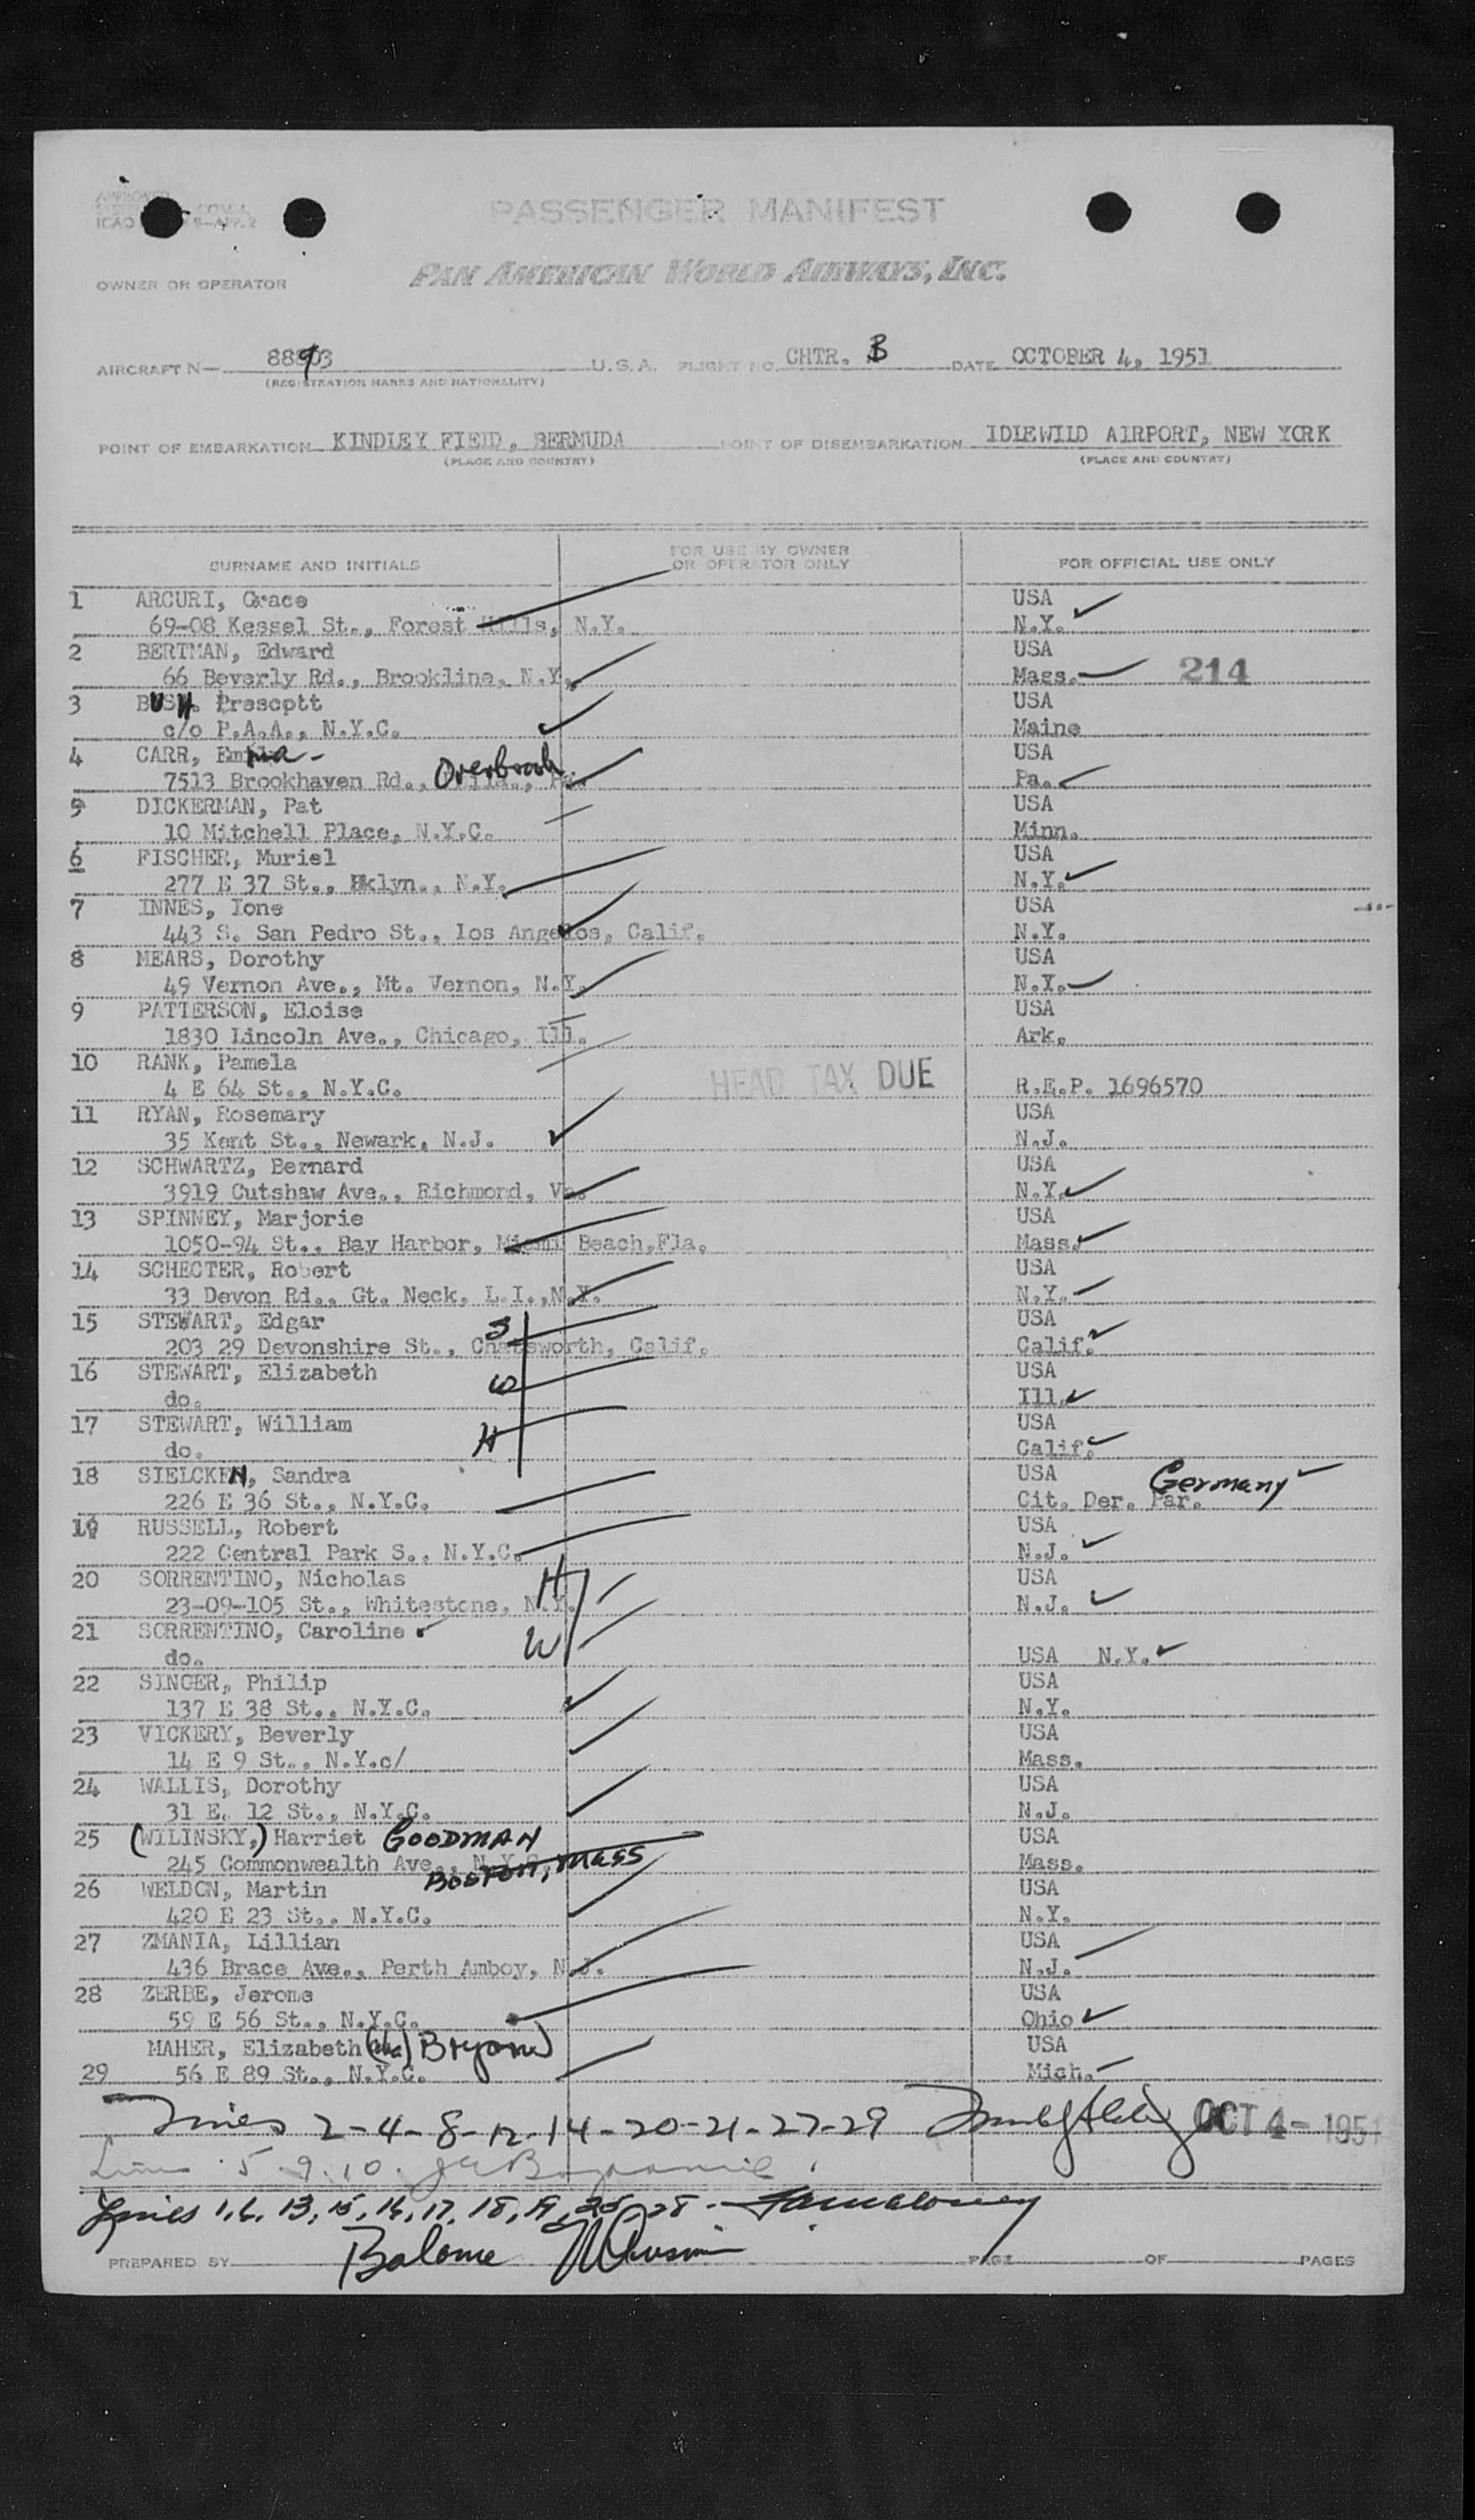 APPROVED
ICAO
PASSENGER MANIFEST
OWNER OR OPERATOR PAN AMERICAN WORLD AIRWAYS, INC.
AIRCRAFT N— 88903 U.S.A. FLIGHT NO. CHTR. B DATE OCTOBER 4, 1951
(REGISTRATION MARKS AND NATIONALITY)
POINT OF EMBARKATION KINDLEY FIELD, BERMUDA POINT OF DISEMBARKATION IDLEWILD AIRPORT, NEW YORK
(PLACE AND COUNTRY) (PLACE AND COUNTRY)
SURNAME AND INITIALS FOR USE BY OWNER OR OPERATOR ONLY FOR OFFICIAL USE ONLY
1 ARCURI, Grace USA
69-08 Kessel St., Forest Hills, N.Y. N.Y.
2 BERTMAN, Edward USA
66 Beverly Rd., Brookline, N.Y. Mass. 214
3 BUSH, Prescott USA
c/o P.A.A., N.Y.C. Maine
4 CARR, Emma USA
7513 Brookhaven Rd., Overbrook Pa. Pa.
5 DICKERMAN, Pat USA
10 Mitchell Place, N.Y.C. Minn.
6 FISCHER, Muriel USA
277 E 37 St., Bklyn., N.Y. N.Y.
7 INNES, Ione USA
443 S. San Pedro St., Los Angelos, Calif. N.Y.
8 MEARS, Dorothy USA
49 Vernon Ave., Mt. Vernon, N.Y. N.Y.
9 PATTERSON, Eloise USA
1830 Lincoln Ave., Chicago, Ill. Ark.
10 RANK, Pamela
4 E 64 St., N.Y.C. HEAD TAX DUE R.E.P. 1696570
11 RYAN, Rosemary USA
35 Kent St., Newark, N.J. N.J.
12 SCHWARTZ, Bernard USA
3919 Cutshaw Ave., Richmond, Va. N.Y.
13 SPINNEY, Marjorie USA
1050-94 St., Bay Harbor, Miami Beach,Fla. Mass.
14 SCHECTER, Robert USA
33 Devon Rd., Gt. Neck, L.I.,N.Y. N.Y.
15 STEWART, Edgar S USA
203 29 Devonshire St., Chatsworth, Calif. Calif.
16 STEWART, Elizabeth W USA
do. Ill.
17 STEWART, William H USA
do. Calif.
18 SIELCKEN, Sandra USA Germany
226 E 36 St., N.Y.C. Cit. Der. Par.
19 RUSSELL, Robert USA
222 Central Park S., N.Y.C. N.J.
20 SORRENTINO, Nicholas H USA
23-09-105 St., Whitestone, N.Y. N.J.
21 SORRENTINO, Caroline W
do. USA N.Y.
22 SINGER, Philip USA
137 E 38 St., N.Y.C. N.Y.
23 VICKERY, Beverly USA
14 E 9 St., N.Y.c/ Mass.
24 WALLIS, Dorothy USA
31 E. 12 St., N.Y.C. N.J.
25 (WILINSKY,) Harriet GOODMAN USA
245 Commonwealth Ave., N.Y.C. BOSTON, MASS Mass.
26 WELDON, Martin USA
420 E 23 St., N.Y.C. N.Y.
27 ZMANIA, Lillian USA
436 Brace Ave., Perth Amboy, N.J. N.J.
28 ZERBE, Jerome USA
59 E 56 St., N.Y.C. Ohio
MAHER, Elizabeth USA
29 56 E 89 St., N.Y.C. Mich.
Lines 2-4-8-12-14-20-21-27-29 OCT 4- 1951
Lines 5.9.10.
Lines 1,6,13,15,16,17,18,19,25,28-
PREPARED BY PAGE OF PAGES